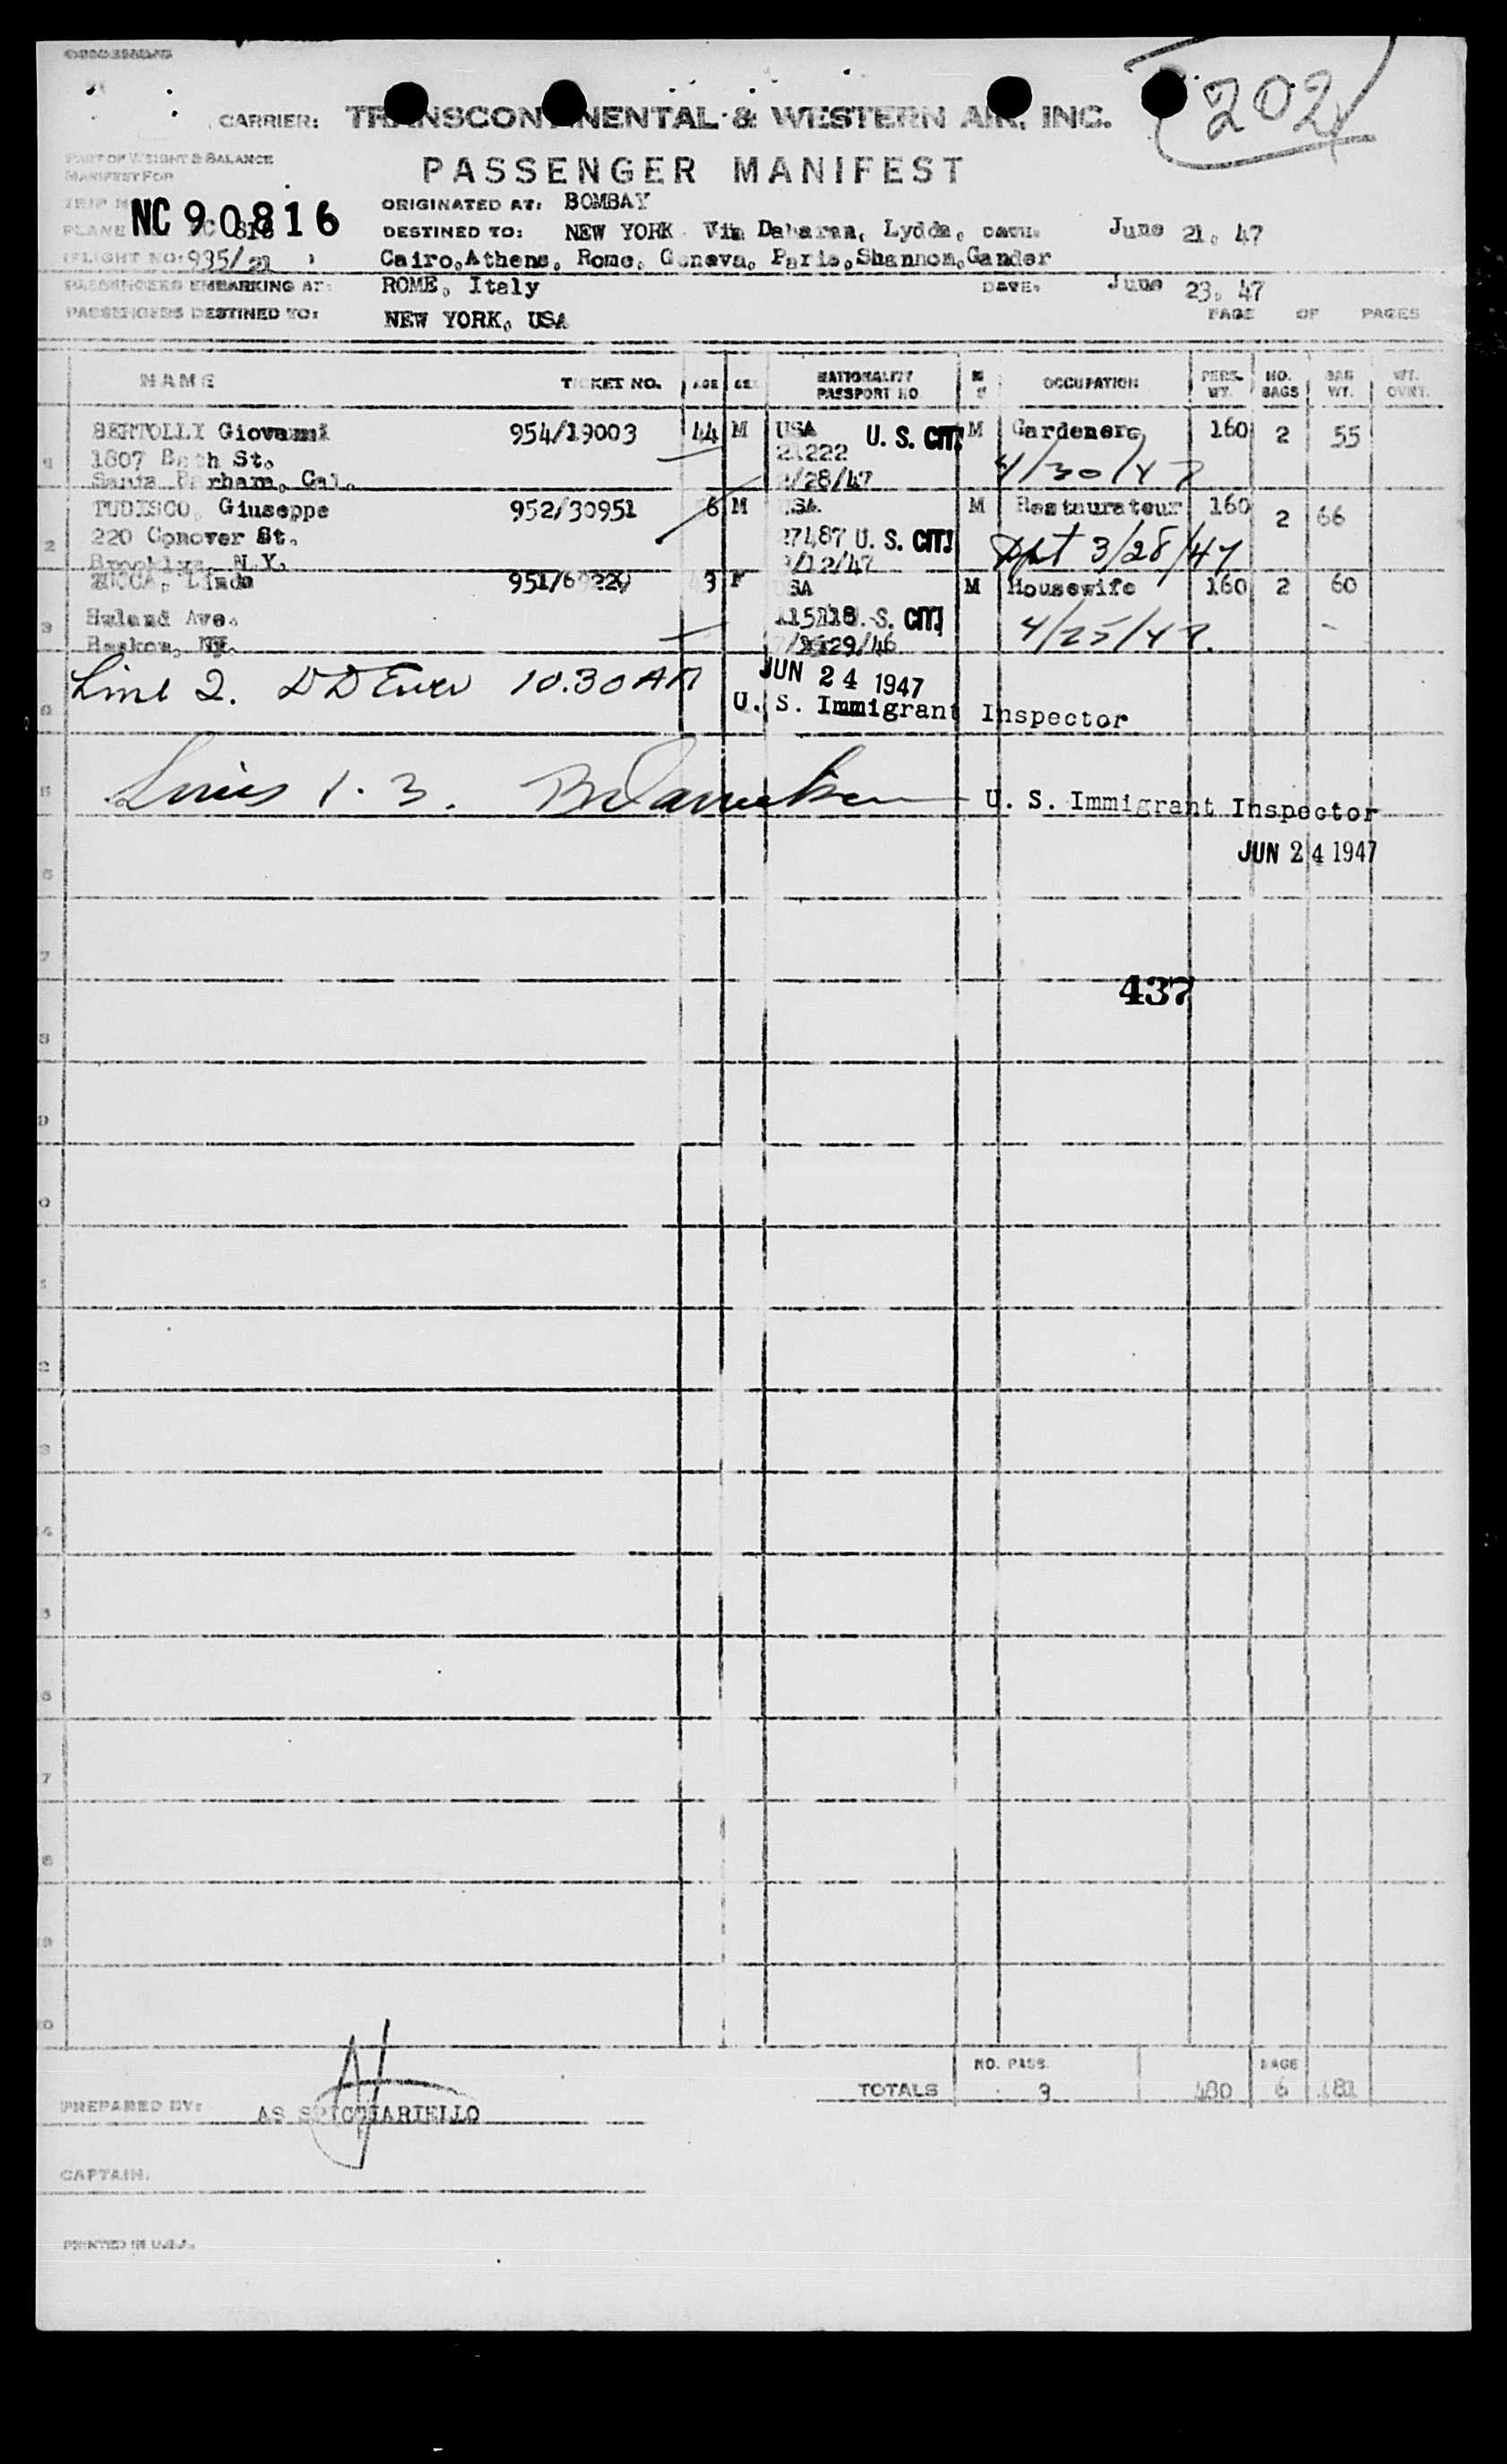 202
CARRIER: TRANSCONTINENTAL & WESTERN AIR, INC.
PART OF WEIGHT & BALANCE
MANIFEST FOR
PASSENGER MANIFEST
NC 90816
ORIGINATED AT: BOMBAY
PLANE
DESTINED TO: NEW YORK Via Daharan, Lydda, DATE: June 21, 47
FLIGHT NO: 935/21
Cairo, Athens, Rome, Geneva, Paris, Shannon, Gander
PASSENGERS EMBARKING AT: ROME, Italy DATE: June 23, 47
PASSENGERS DESTINED TO: NEW YORK, USA PAGE OF PAGES
NAME TICKET NO. AGE SEX NATIONALITY PASSPORT NO OCCUPATION PERS. WT. NO. BAGS BAG WT. WT. OVWT.
BERTOLLI Giovanni 954/19003 44 M USA U. S. CIT! M Gardener 160 2 55
1807 Bath St. 21222 4/30/47
Cal. /28/47
TUDISCO, Giuseppe 952/30951 6 M USA M Restaurateur 160 2 66
2 220 Conover St. 27487 U. S. CIT! 3/28/47
Brooklyn, N.Y. /12/47
ZUCCA, Linda 3 F USA M Housewife 160 2 60
3 Huland Ave. U. S. CIT! 4/25/47.
29/46
Line 2. 10.30 AM JUN 24 1947
U. S. Immigrant Inspector
Lines 1.3. U. S. Immigrant Inspector
JUN 24 1947
6
7
437
8
9
NO. PASS. BAGS
TOTALS 3 480 6 181
PREPARED BY: AS
CAPTAIN:
PRINTED IN U.S.A.